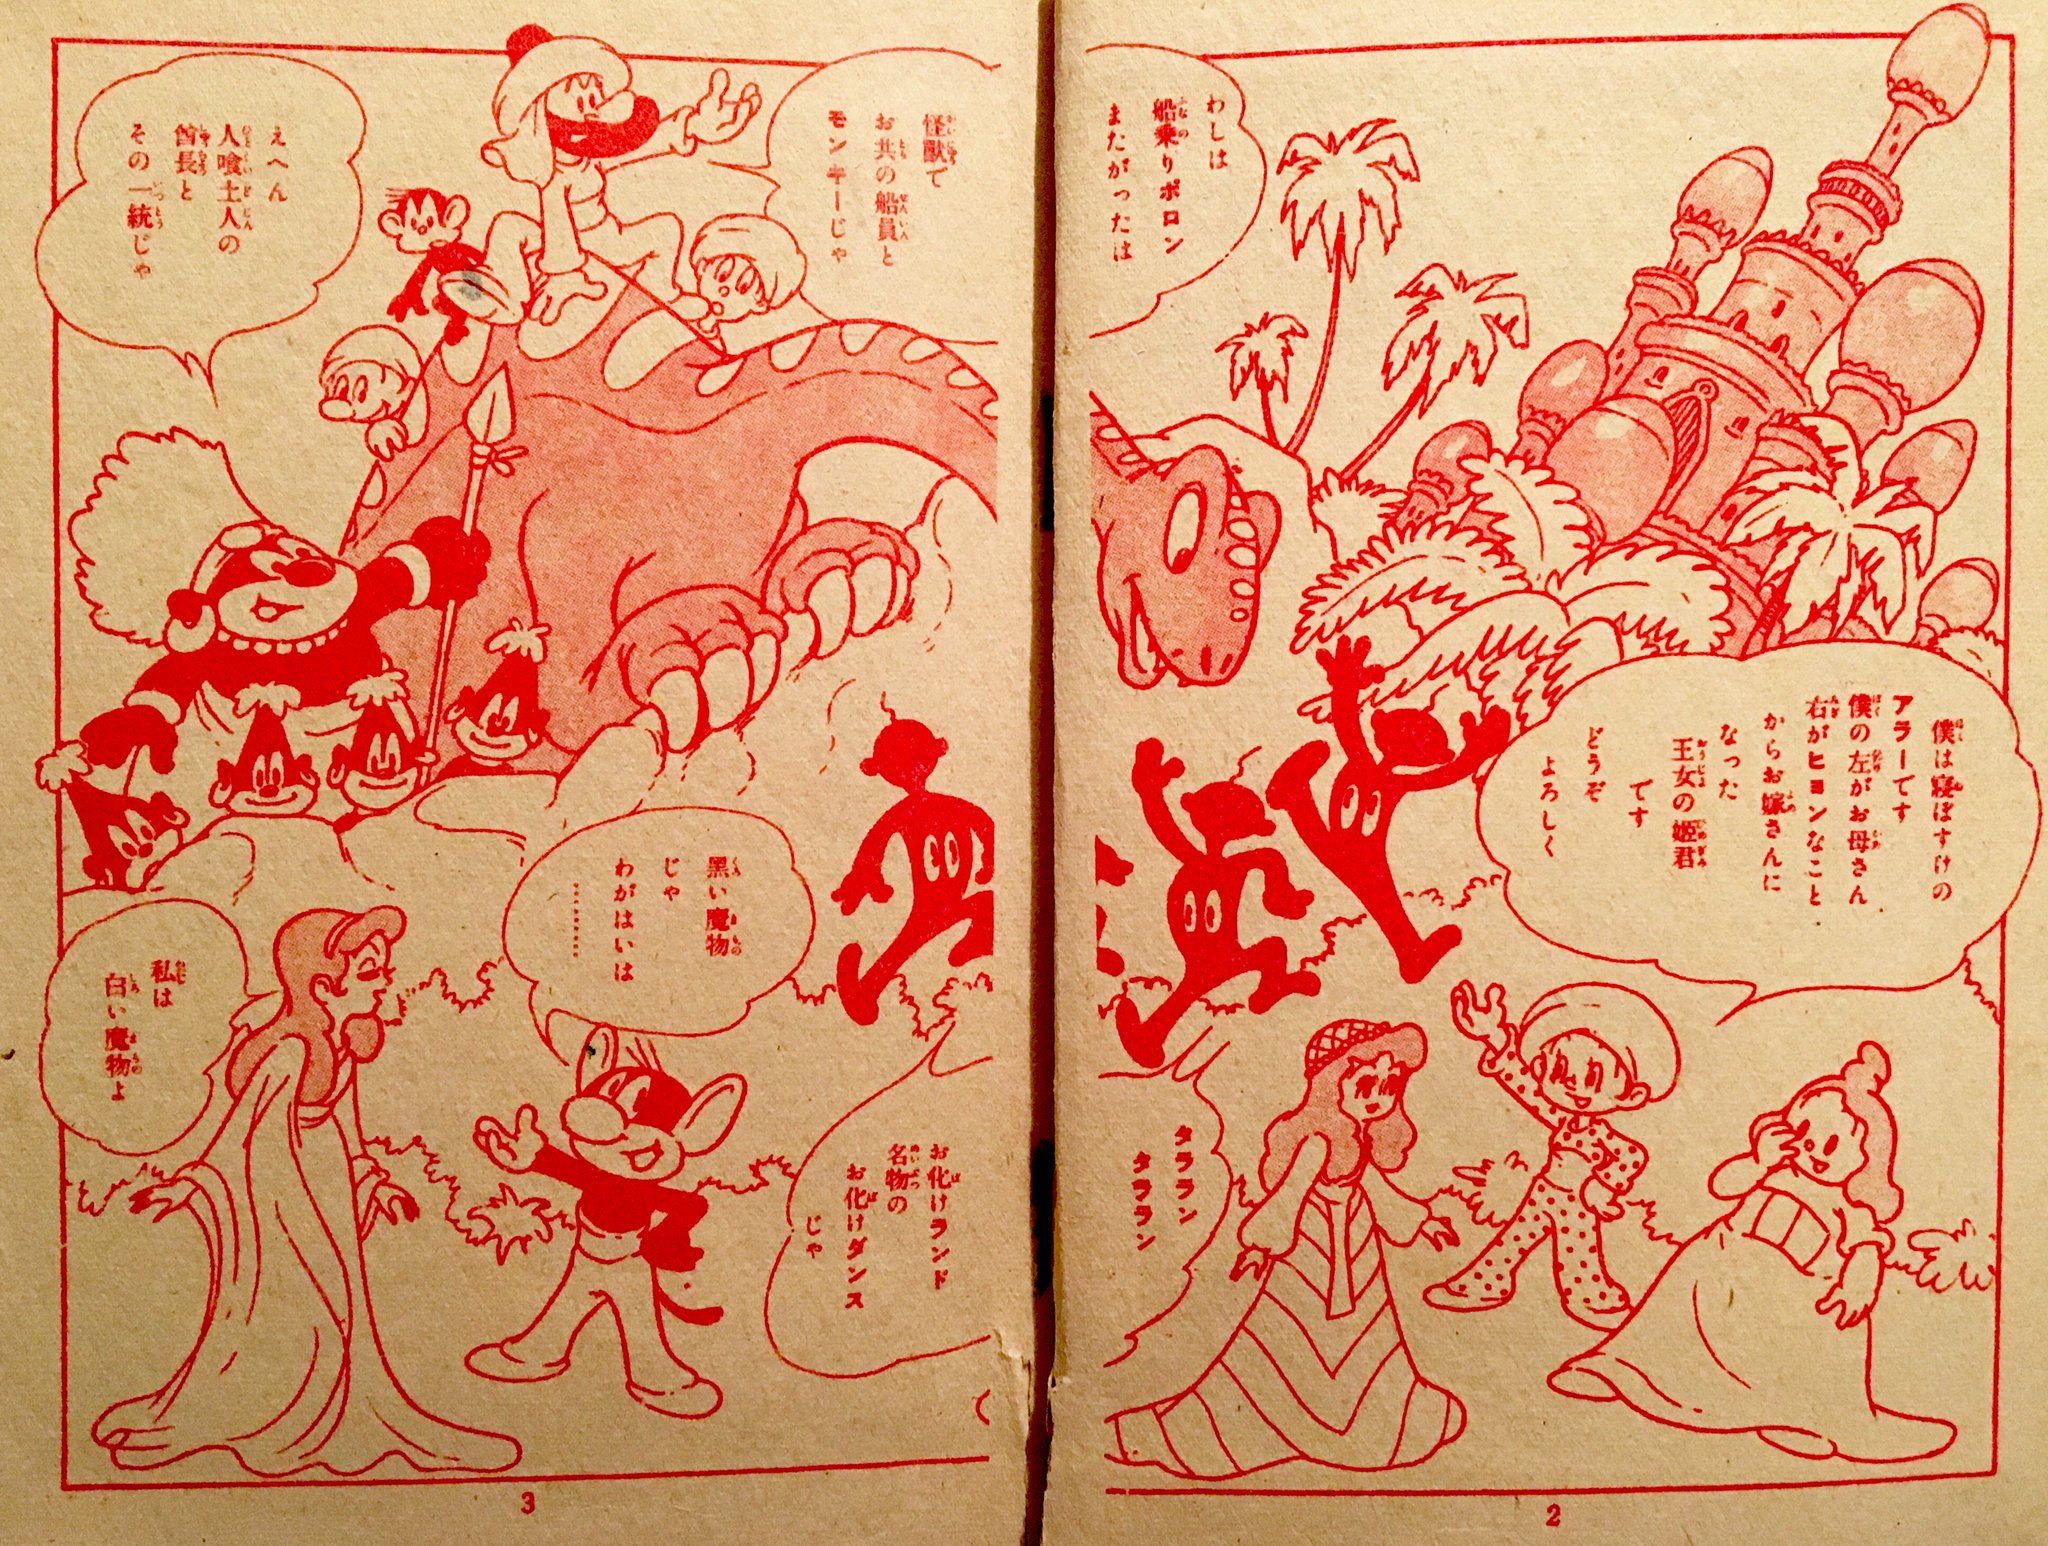 僕は寝ぼすけの
アラーです
僕の左がお母さん
右がヒョンなこと
からお嫁さんに
なった
王女の姫君
です
どうぞ
よろしく
わしは
船乗りポロン
またがったは
怪獣で
お共の船員と
モンキーじゃ
えへん
人喰土人の
酋長と
その一統じゃ
タララン
タララン
お化けランド
名物の
お化けダンス
じゃ
黒い魔物
じゃ
わがはいは
…………
私は
白い魔物よ
2
3